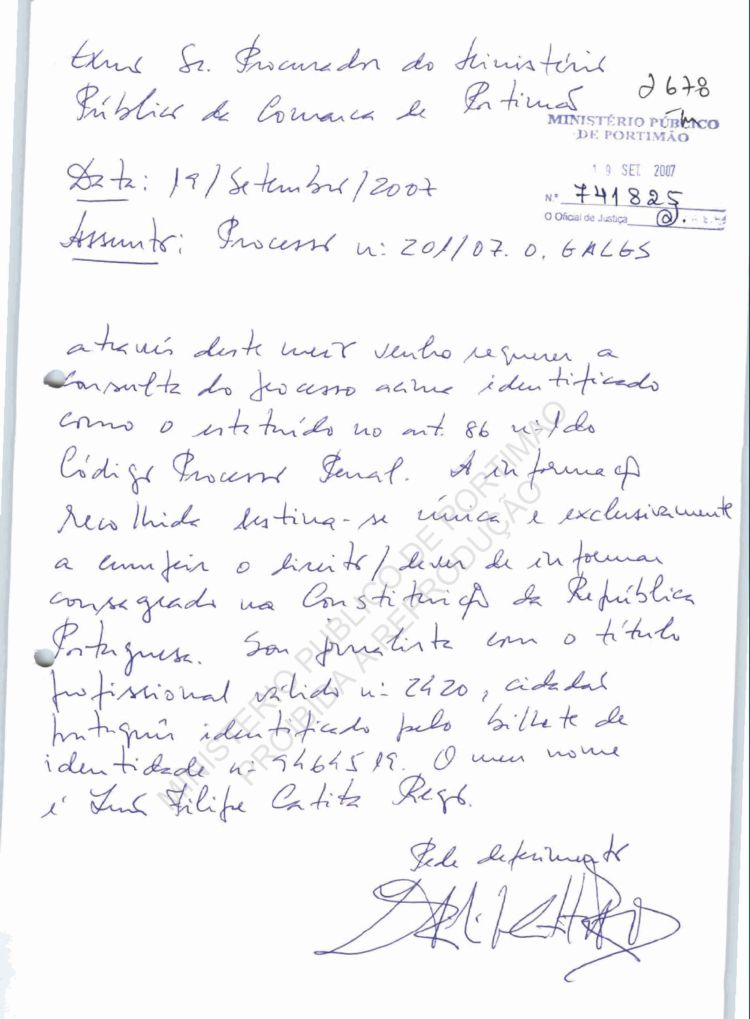 Exmo Sr. Procurador do Ministério
Público da Comarca de Portimão
2678
MINISTÉRIO PÚBLICO
DE PORTIMÃO
19 SET. 2007
N.º 741825
O Oficial de Justiça
Data: 19/Setembro/2007
Assunto: Processo nº 201/07.0.GALGS
através deste meio venho requerer a
consulta do processo acima identificado
como o estatuído no art. 86 nº 1 do
Código Processo Penal. A informação
recolhida destina-se única e exclusivamente
a cumprir o direito/dever de informar
consagrado na Constituição da República
Portuguesa. Sou jornalista com o título
profissional válido nº 2420, cidadão
português identificado pelo bilhete de
identidade nº 9464519. O meu nome
é Luís Filipe Catita Rego.
Pede deferimento
MINISTÉRIO PÚBLICO DE PORTIMÃO
PROIBIDA A REPRODUÇÃO